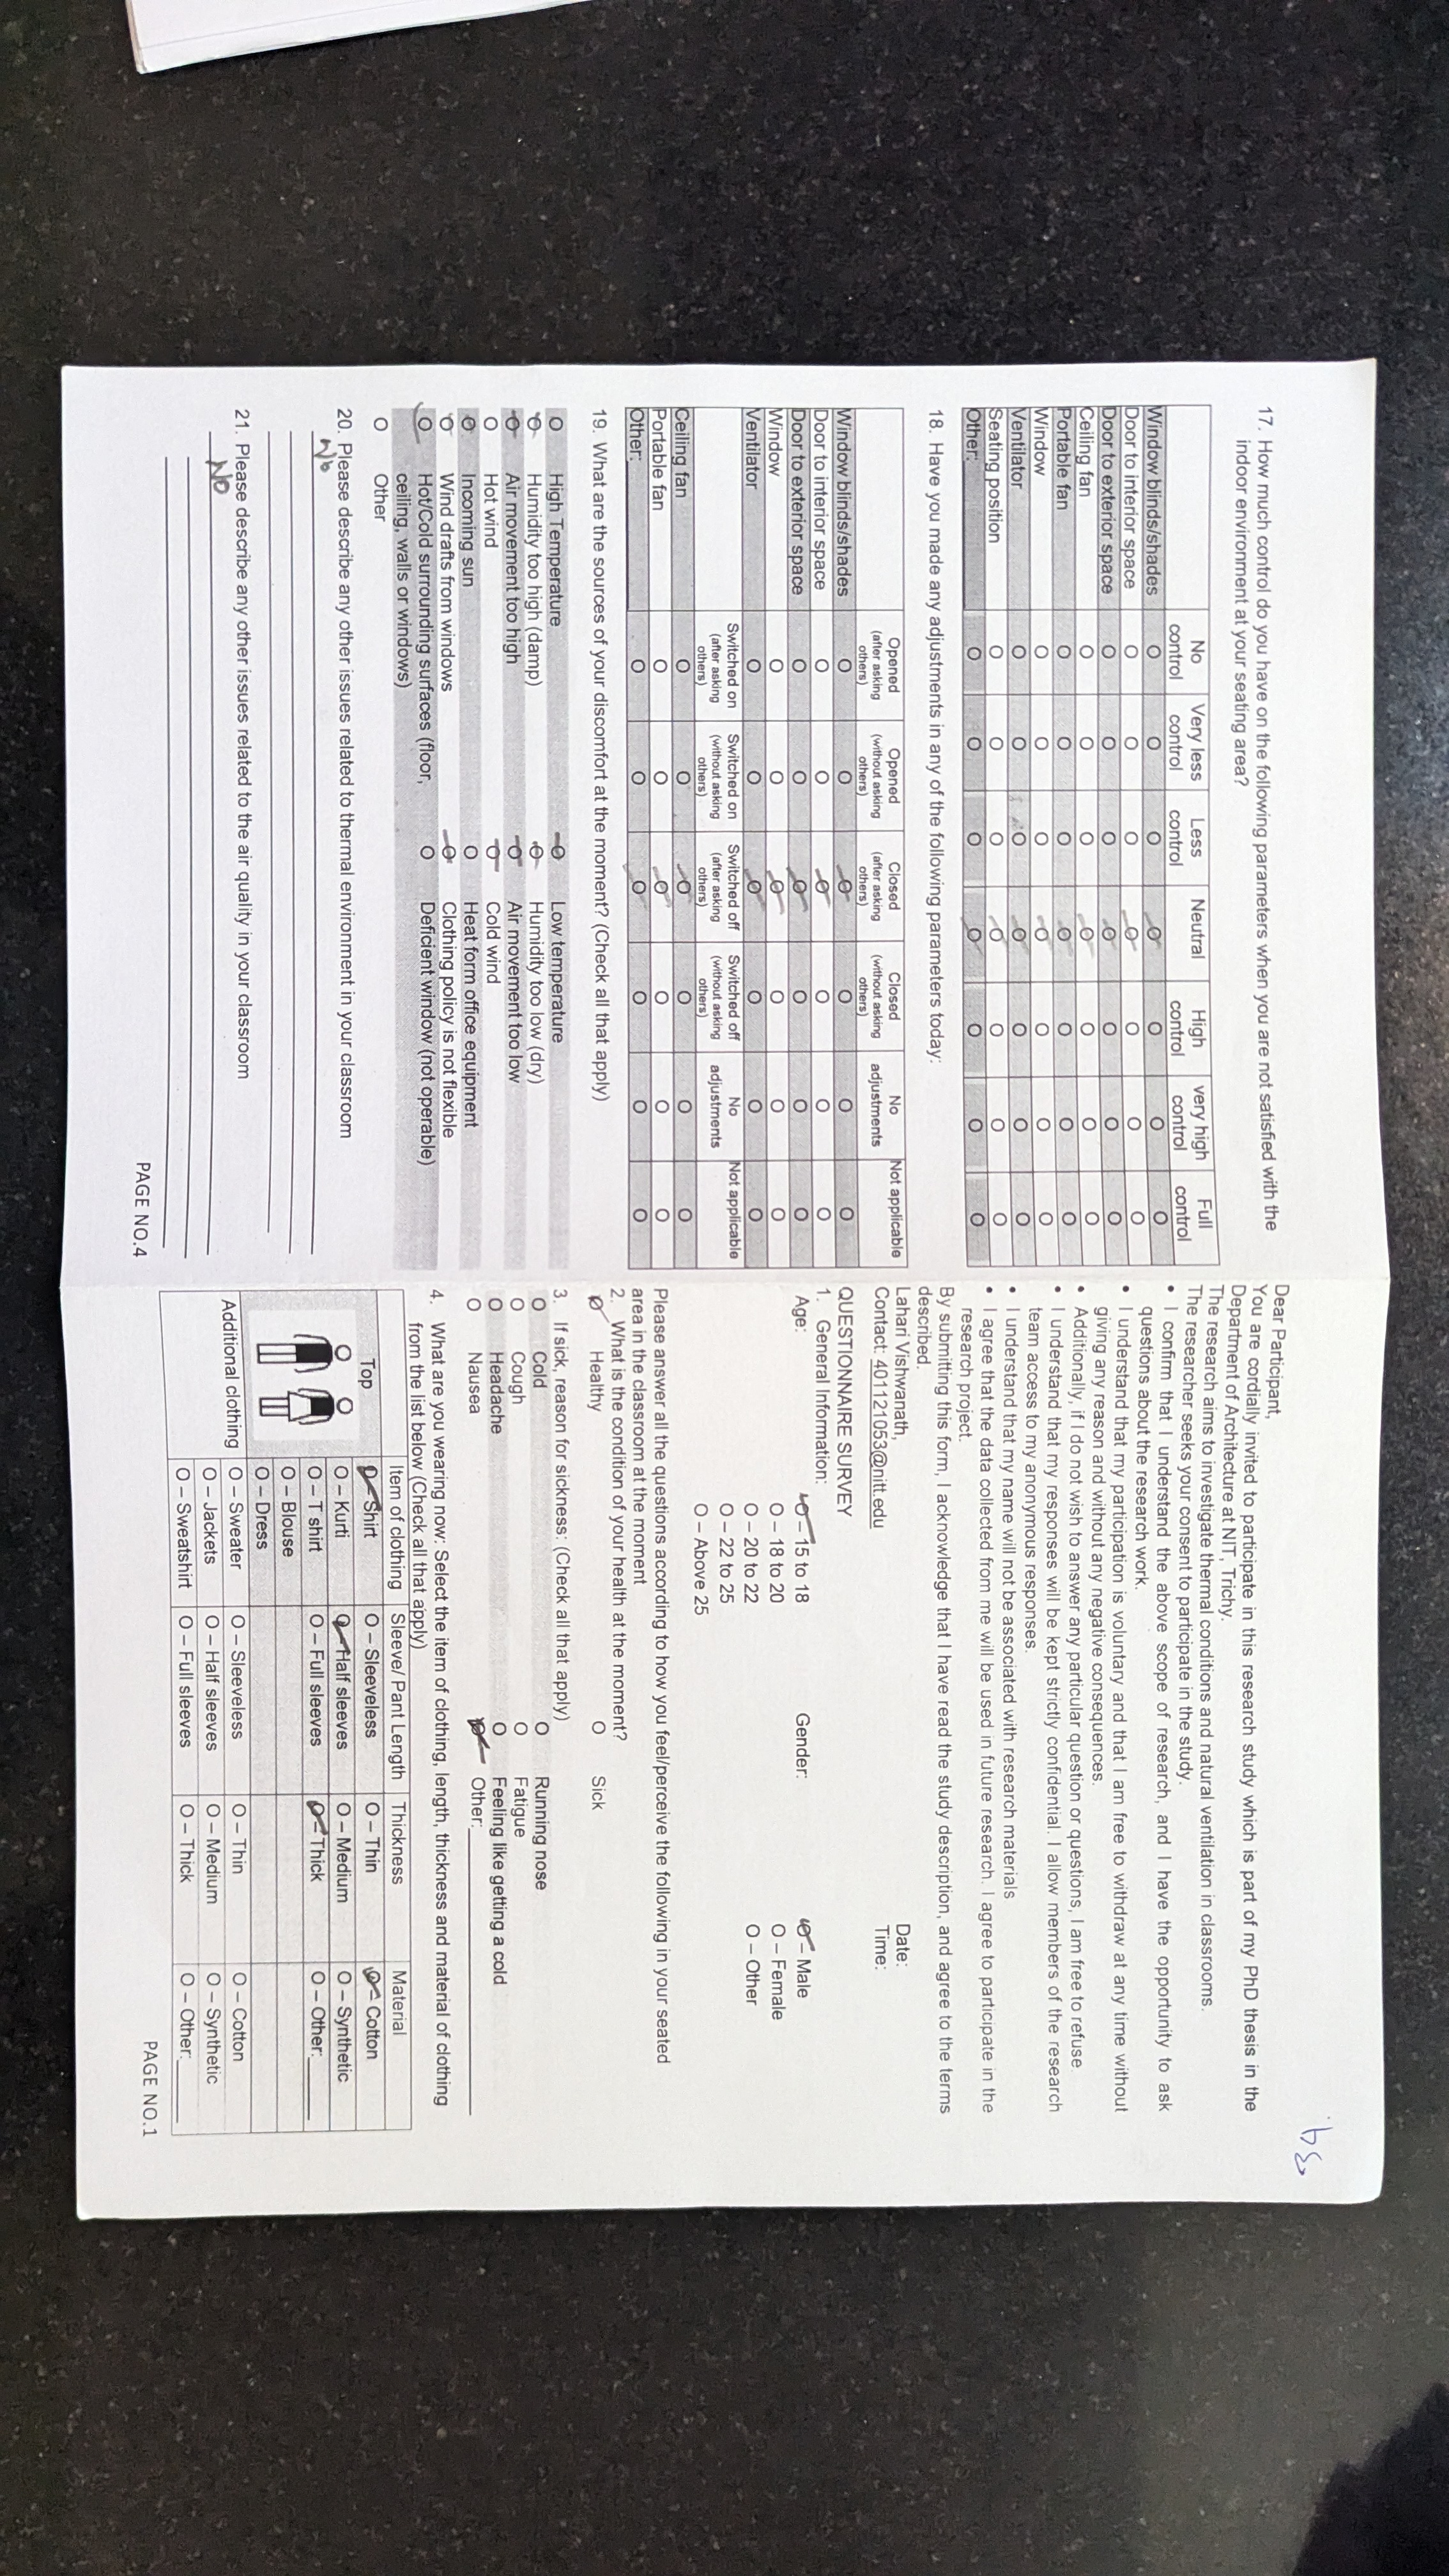 17. How much control do you have on the following parameters when you are not satisfied with the
indoor environment at your seating area?
No control Very less control Less control Neutral High control very high control Full control
Window blinds/shades O O O O O O O
Door to interior space O O O O O O O
Door to exterior space O O O O O O O
Ceiling fan O O O O O O O
Portable fan O O O O O O O
Window O O O O O O O
Ventilator O O O O O O O
Seating position O O O O O O O
Other: O O O O O O O
18. Have you made any adjustments in any of the following parameters today:
Opened (after asking others) Opened (without asking others) Closed (after asking others) Closed (without asking others) No adjustments Not applicable
Window blinds/shades O O O O O O
Door to interior space O O O O O O
Door to exterior space O O O O O O
Window O O O O O O
Ventilator O O O O O O
Switched on (after asking others) Switched on (without asking others) Switched off (after asking others) Switched off (without asking others) No adjustments Not applicable
Ceiling fan O O O O O O
Portable fan O O O O O O
Other: O O O O O O
19. What are the sources of your discomfort at the moment? (Check all that apply)
O High Temperature O Low temperature
O Humidity too high (damp) O Humidity too low (dry)
O Air movement too high O Air movement too low
O Hot wind O Cold wind
O Incoming sun O Heat form office equipment
O Wind drafts from windows O Clothing policy is not flexible
O Hot/Cold surrounding surfaces (floor, O Deficient window (not operable)
ceiling, walls or windows)
O Other
20. Please describe any other issues related to thermal environment in your classroom
No
21. Please describe any other issues related to the air quality in your classroom
No
PAGE NO.4
Dear Participant,
You are cordially invited to participate in this research study which is part of my PhD thesis in the
Department of Architecture at NIT, Trichy.
The research aims to investigate thermal conditions and natural ventilation in classrooms.
The researcher seeks your consent to participate in the study.
• I confirm that I understand the above scope of research, and I have the opportunity to ask
questions about the research work.
• I understand that my participation is voluntary and that I am free to withdraw at any time without
giving any reason and without any negative consequences.
• Additionally, if I do not wish to answer any particular question or questions, I am free to refuse
• I understand that my responses will be kept strictly confidential. I allow members of the research
team access to my anonymous responses.
• I understand that my name will not be associated with research materials
• I agree that the data collected from me will be used in future research. I agree to participate in the
research project.
By submitting this form, I acknowledge that I have read the study description, and agree to the terms
described.
Lahari Vishwanath, Date:
Contact: 401121053@nitt.edu Time:
QUESTIONNAIRE SURVEY
1. General Information:
Age: O – 15 to 18 Gender: O – Male
O – 18 to 20 O – Female
O – 20 to 22 O – Other
O – 22 to 25
O – Above 25
Please answer all the questions according to how you feel/perceive the following in your seated
area in the classroom at the moment
2. What is the condition of your health at the moment?
O Healthy O Sick
3. If sick, reason for sickness: (Check all that apply)
O Cold O Running nose
O Cough O Fatigue
O Headache O Feeling like getting a cold
O Nausea O Other:
4. What are you wearing now: Select the item of clothing, length, thickness and material of clothing
from the list below (Check all that apply)
Item of clothing Sleeve/ Pant Length Thickness Material
Top O – Shirt O – Sleeveless O – Thin O – Cotton
O O O – Kurti O – Half sleeves O – Medium O – Synthetic
O – T shirt O – Full sleeves O – Thick O – Other:
O – Blouse
O – Dress
Additional clothing O – Sweater O – Sleeveless O – Thin O – Cotton
O – Jackets O – Half sleeves O – Medium O – Synthetic
O – Sweatshirt O – Full sleeves O – Thick O – Other:
PAGE NO.1